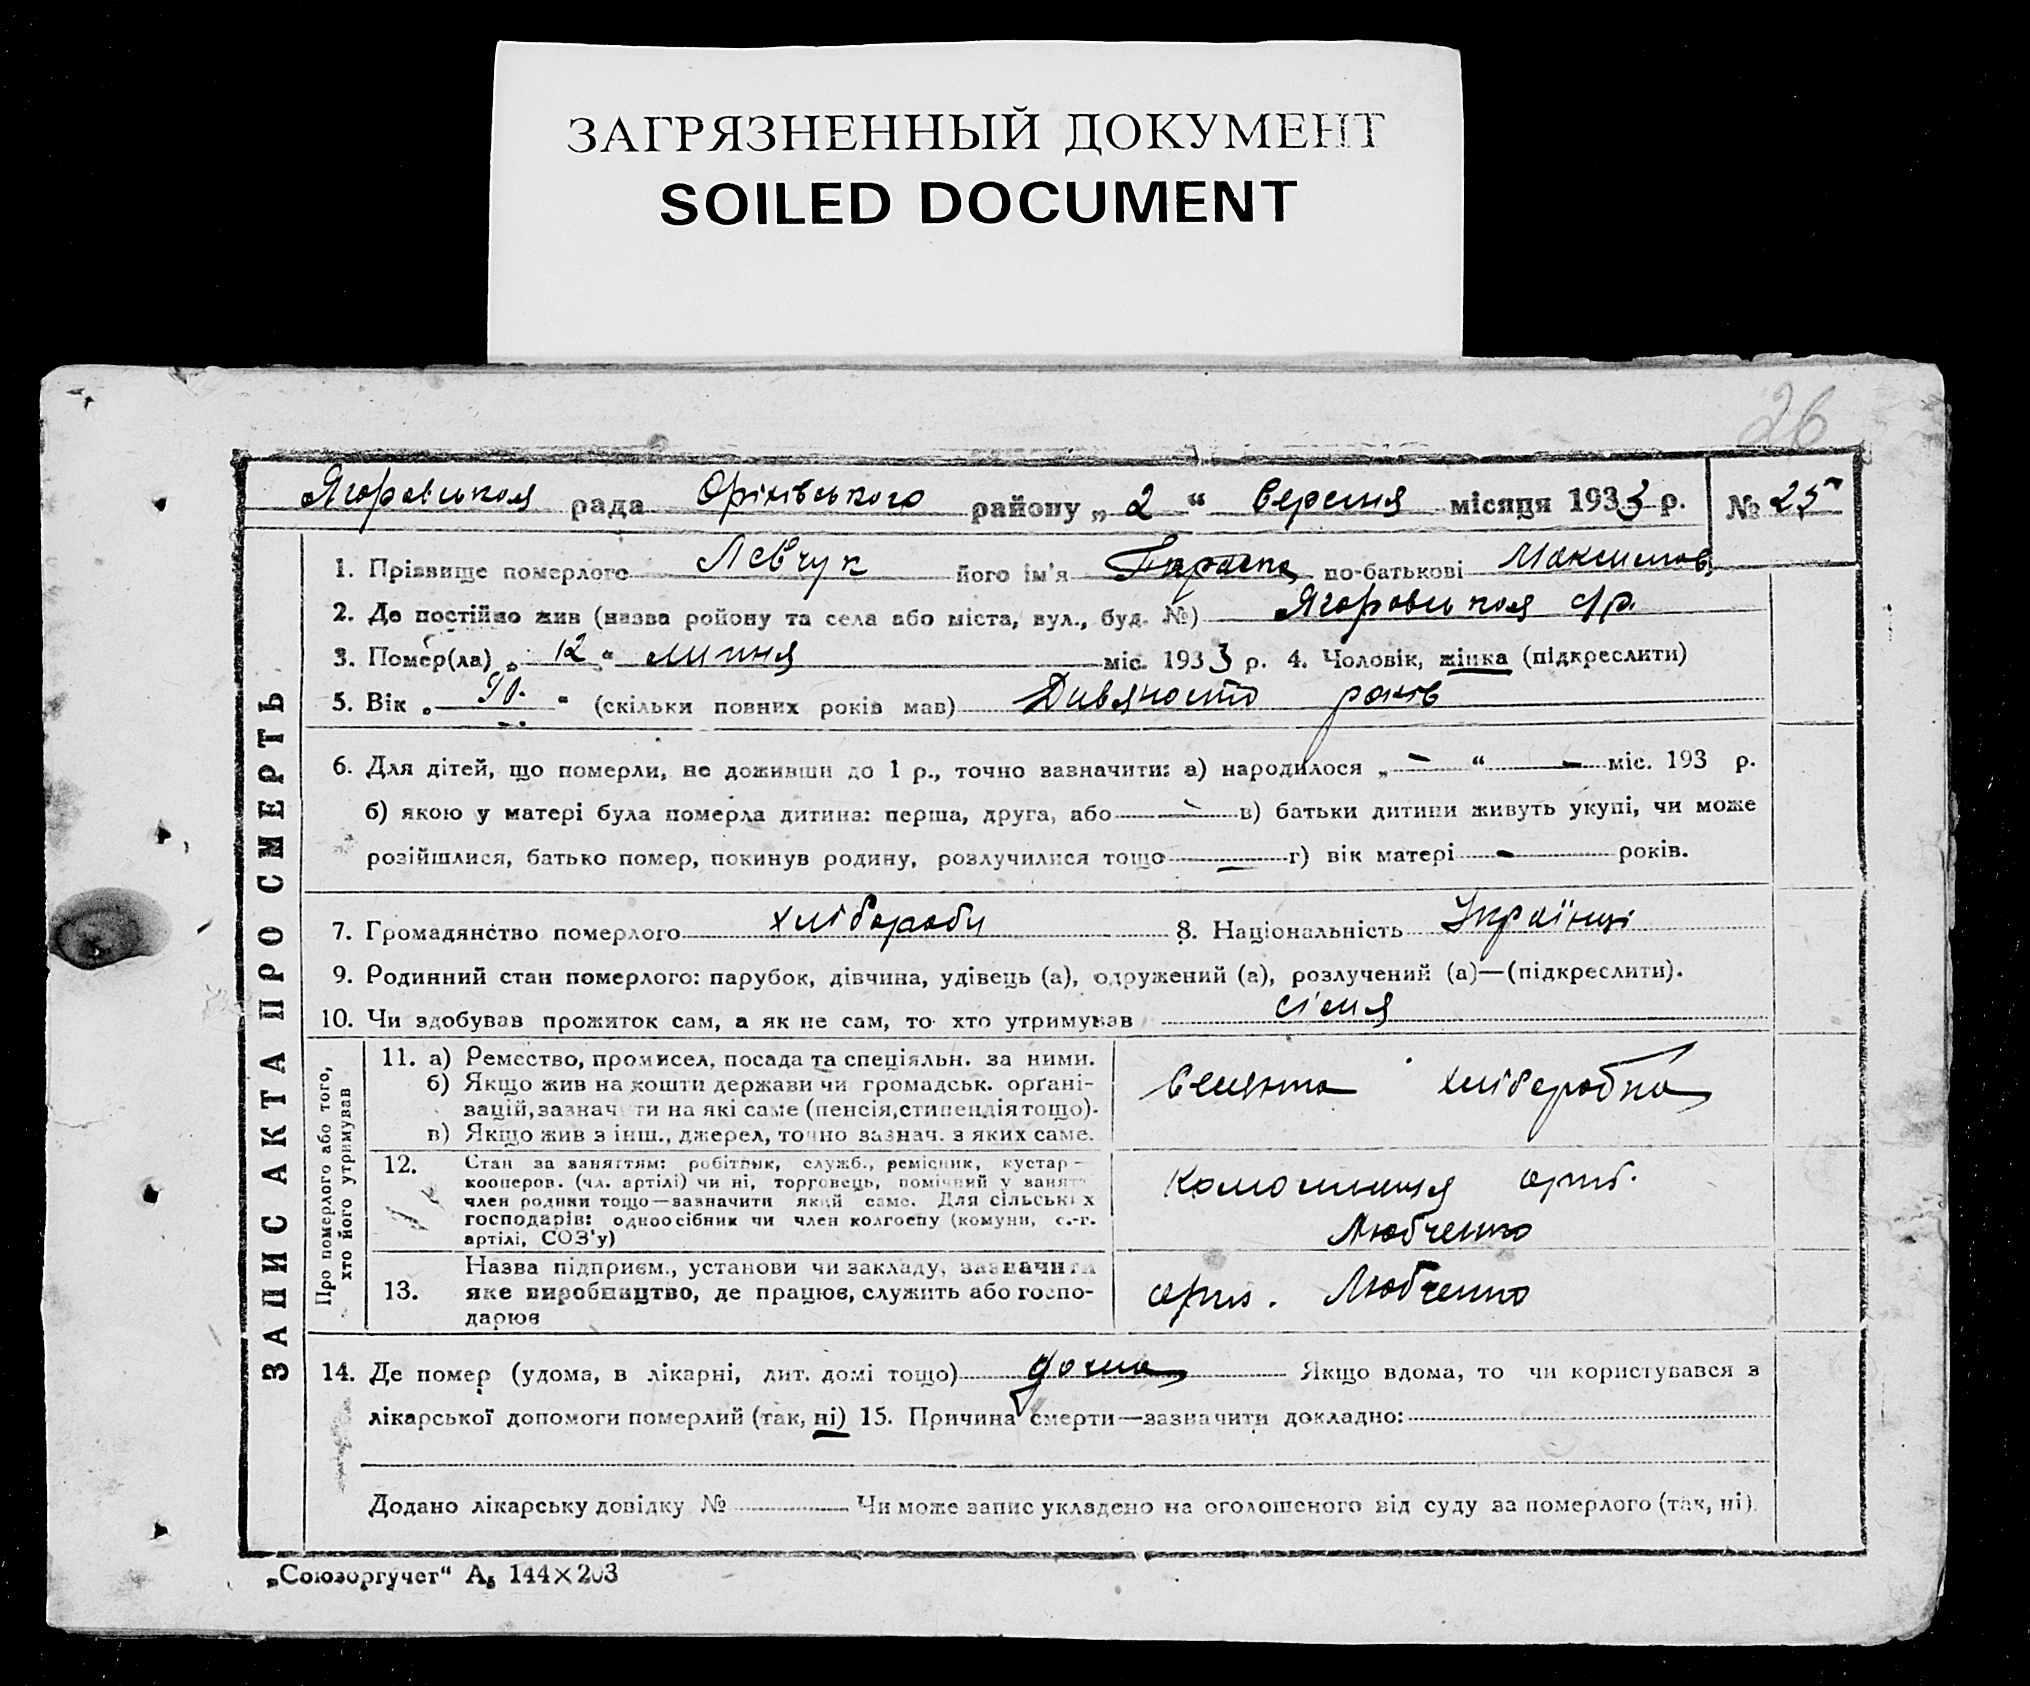 ЗАГРЯЗНЕННЫЙ ДОКУМЕНТ
SOILED DOCUMENT
26
Ягоровськоя рада Орінівського району „ 2 “ вересня місяця 1933 р. № 25
ЗАПИС АКТА ПРО СМЕРТЬ
1. Прізвище померлого Левчук його ім'я Параска по-батькові Максимов.
2. Де постійно жив (назва району та села або міста, вул., буд. №) Ягоровськоя с/р.
3. Помер(ла) „ 12 “ липня міс. 1933 р. 4. Чоловік, жінка (підкреслити)
5. Вік „ 90. “ (скільки повних років мав) Дивяносто років
6. Для дітей, що померли, не доживши до 1 р., точно зазначити: а) народилося „ – “ – міс. 193 р.
б) якою у матері була померла дитина: перша, друга, або – в) батьки дитини живуть укупі, чи може
розійшлися, батько помер, покинув родину, розлучилися тощо – г) вік матері – років.
7. Громадянство померлого хлібороби 8. Національність Українці
9. Родинний стан померлого: парубок, дівчина, удівець (а), одружений (а), розлучений (а)—(підкреслити).
10. Чи здобував прожиток сам, а як не сам, то хто утримував сімя
Про померлого або того, хто його утримував
11. а) Ремество, промисел, посада та спеціяльн. за ними.
б) Якщо жив на кошти держави чи громадськ. орґані-
зацій, зазначити на які саме (пенсія, стипендія тощо).
в) Якщо жив з інш., джерел, точно зазнач. з яких саме.
хлібаробка
12. Стан за заняттям: робітник, служб., ремісник, кустар—
кооперов. (чл. артілі) чи ні, торговець, помічний у занятт
член родини тощо—зазначити який саме. Для сільських
господарів: одноосібник чи член колгоспу (комуни, с.-г.
артілі, СОЗ'у)
арт.
Любченко
13. Назва підприєм., установи чи закладу, зазначити
яке виробництво, де працює, служить або госпо-
дарює
арт. Любченко
14. Де помер (удома, в лікарні, дит. домі тощо) дома Якщо вдома, то чи користувався з
лікарської допомоги померлий (так, ні) 15. Причина смерти—зазначити докладно:
Додано лікарську довідку № Чи може запис укладено на оголошеного від суду за померлого (так, ні).
„Союзоргучет“ А5 144×203